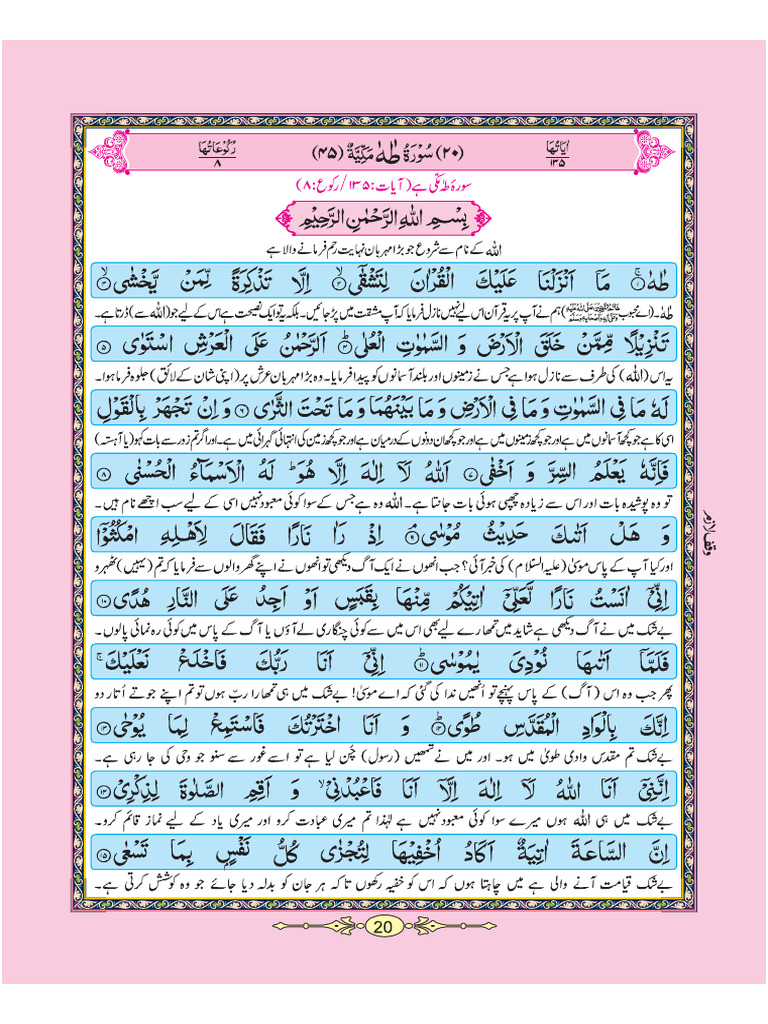 اٰيَاتُهَا ١٣٥ (٢٠) سُوْرَةُ طٰهٰ مَكِّيَّةٌ (٤٥) رُكُوْعَاتُهَا ٨
سورۂ طٰہٰ مکّی ہے (آیات: ۱۳۵/ رکوع: ۸)
بِسْمِ اللّٰهِ الرَّحْمٰنِ الرَّحِيْمِ
اللّٰہ کے نام سے شروع جو بڑا مہربان نہایت رحم فرمانے والا ہے
طٰهٰ ۚ‏﴿۱﴾ مَاۤ اَنْزَلْنَا عَلَيْكَ الْقُرْاٰنَ لِتَشْقٰٓى ۙ‏﴿۲﴾ اِلَّا تَذْكِرَةً لِّمَنْ يَّخْشٰى ۙ‏﴿۳﴾
طٰہٰ۔ (اے محبوب ﷺ) ہم نے آپ پر یہ قرآن اس لیے نہیں نازل فرمایا کہ آپ مشقت میں پڑ جائیں۔ بلکہ یہ تو ایک نصیحت ہے اس کے لیے جو (اللّٰہ سے) ڈرتا ہے۔
تَنْزِيْلًا مِّمَّنْ خَلَقَ الْاَرْضَ وَ السَّمٰوٰتِ الْعُلٰى ؕ‏﴿۴﴾ اَلرَّحْمٰنُ عَلَى الْعَرْشِ اسْتَوٰى ‏﴿۵﴾
یہ اس (اللّٰہ) کی طرف سے نازل ہوا ہے جس نے زمینوں اور بلند آسمانوں کو پیدا فرمایا۔ وہ بڑا مہربان عرش پر (اپنی شان کے لائق) جلوہ فرما ہوا۔
لَهٗ مَا فِى السَّمٰوٰتِ وَ مَا فِى الْاَرْضِ وَ مَا بَيْنَهُمَا وَ مَا تَحْتَ الثَّرٰى ‏﴿۶﴾ وَ اِنْ تَجْهَرْ بِالْقَوْلِ
اسی کا ہے جو کچھ آسمانوں میں ہے اور جو کچھ زمینوں میں ہے اور جو کچھ ان دونوں کے درمیان ہے اور جو کچھ زمین کی انتہائی گہرائی میں ہے۔ اور اگر تم زور سے بات کہو (یا آہستہ)
فَاِنَّهٗ يَعْلَمُ السِّرَّ وَ اَخْفٰى ‏﴿۷﴾ اَللّٰهُ لَاۤ اِلٰهَ اِلَّا هُوَ ؕ لَهُ الْاَسْمَآءُ الْحُسْنٰى ‏﴿۸﴾
تو وہ پوشیدہ بات اور اس سے زیادہ چھپی ہوئی بات جانتا ہے۔ اللّٰہ وہ ہے جس کے سوا کوئی معبود نہیں اسی کے لیے سب اچھے نام ہیں۔
وَ هَلْ اَتٰىكَ حَدِيْثُ مُوْسٰى ۘ‏﴿۹﴾ اِذْ رَاٰ نَارًا فَقَالَ لِاَهْلِهِ امْكُثُوْۤا
اور کیا آپ کے پاس موسیٰ (علیہ السلام) کی خبر آئی؟ جب انھوں نے ایک آگ دیکھی تو انھوں نے اپنے گھر والوں سے فرمایا کہ تم (یہیں) ٹھہرو
وقف لازم
اِنِّىْۤ اٰنَسْتُ نَارًا لَّعَلِّىْۤ اٰتِيْكُمْ مِّنْهَا بِقَبَسٍ اَوْ اَجِدُ عَلَى النَّارِ هُدًى ‏﴿۱۰﴾
بے شک میں نے آگ دیکھی ہے شاید میں تمھارے لیے بھی اس میں سے کوئی چنگاری لے آؤں یا آگ کے پاس میں کوئی رہ نمائی پالوں۔
فَلَمَّاۤ اَتٰىهَا نُوْدِىَ يٰمُوْسٰى ؕ‏﴿۱۱﴾ اِنِّىْۤ اَنَا رَبُّكَ فَاخْلَعْ نَعْلَيْكَ ۚ
پھر جب وہ اس (آگ) کے پاس پہنچے تو انھیں ندا کی گئی کہ اے موسیٰ! بے شک میں ہی تمھارا ربّ ہوں تو تم اپنے جوتے اُتار دو
اِنَّكَ بِالْوَادِ الْمُقَدَّسِ طُوًى ؕ‏﴿۱۲﴾ وَ اَنَا اخْتَرْتُكَ فَاسْتَمِعْ لِمَا يُوْحٰى ‏﴿۱۳﴾
بے شک تم مقدس وادی طویٰ میں ہو۔ اور میں نے تمھیں (رسول) چُن لیا ہے تو اسے غور سے سنو جو وحی کی جا رہی ہے۔
اِنَّنِىْۤ اَنَا اللّٰهُ لَاۤ اِلٰهَ اِلَّاۤ اَنَا فَاعْبُدْنِىْ ۙ وَ اَقِمِ الصَّلٰوةَ لِذِكْرِىْ ‏﴿۱۴﴾
بے شک میں ہی اللّٰہ ہوں میرے سوا کوئی معبود نہیں ہے لہٰذا تم میری عبادت کرو اور میری یاد کے لیے نماز قائم کرو۔
اِنَّ السَّاعَةَ اٰتِيَةٌ اَكَادُ اُخْفِيْهَا لِتُجْزٰى كُلُّ نَفْسٍۭ بِمَا تَسْعٰى ‏﴿۱۵﴾
بے شک قیامت آنے والی ہے میں چاہتا ہوں کہ اس کو خفیہ رکھوں تاکہ ہر جان کو بدلہ دیا جائے جو وہ کوشش کرتی ہے۔
20